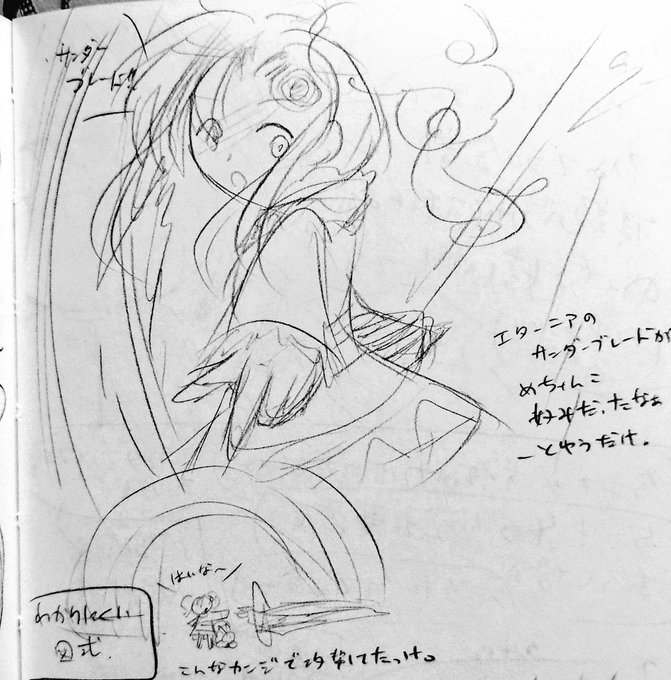 サンダー
ブレードだ!!
エターニアの
サンダーブレードが
めちゃんこ
好みだったなぁ
ーとゆうだけ。
はいな〜
わかりにくい
図式.
こんなカンジで攻撃してたっけ。